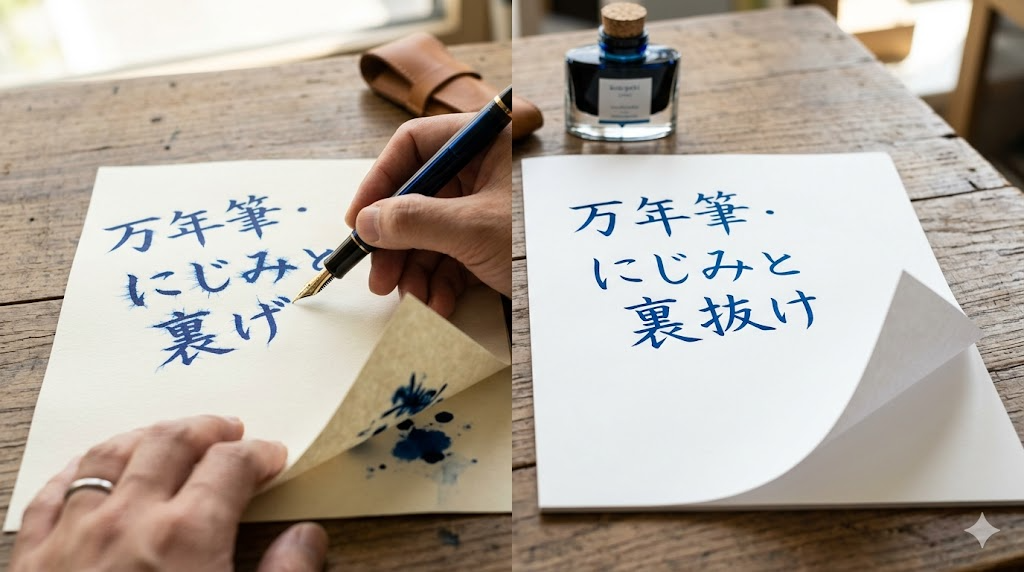 万年筆・
にじみと
裏げ
万年筆・
にじみと
裏抜け